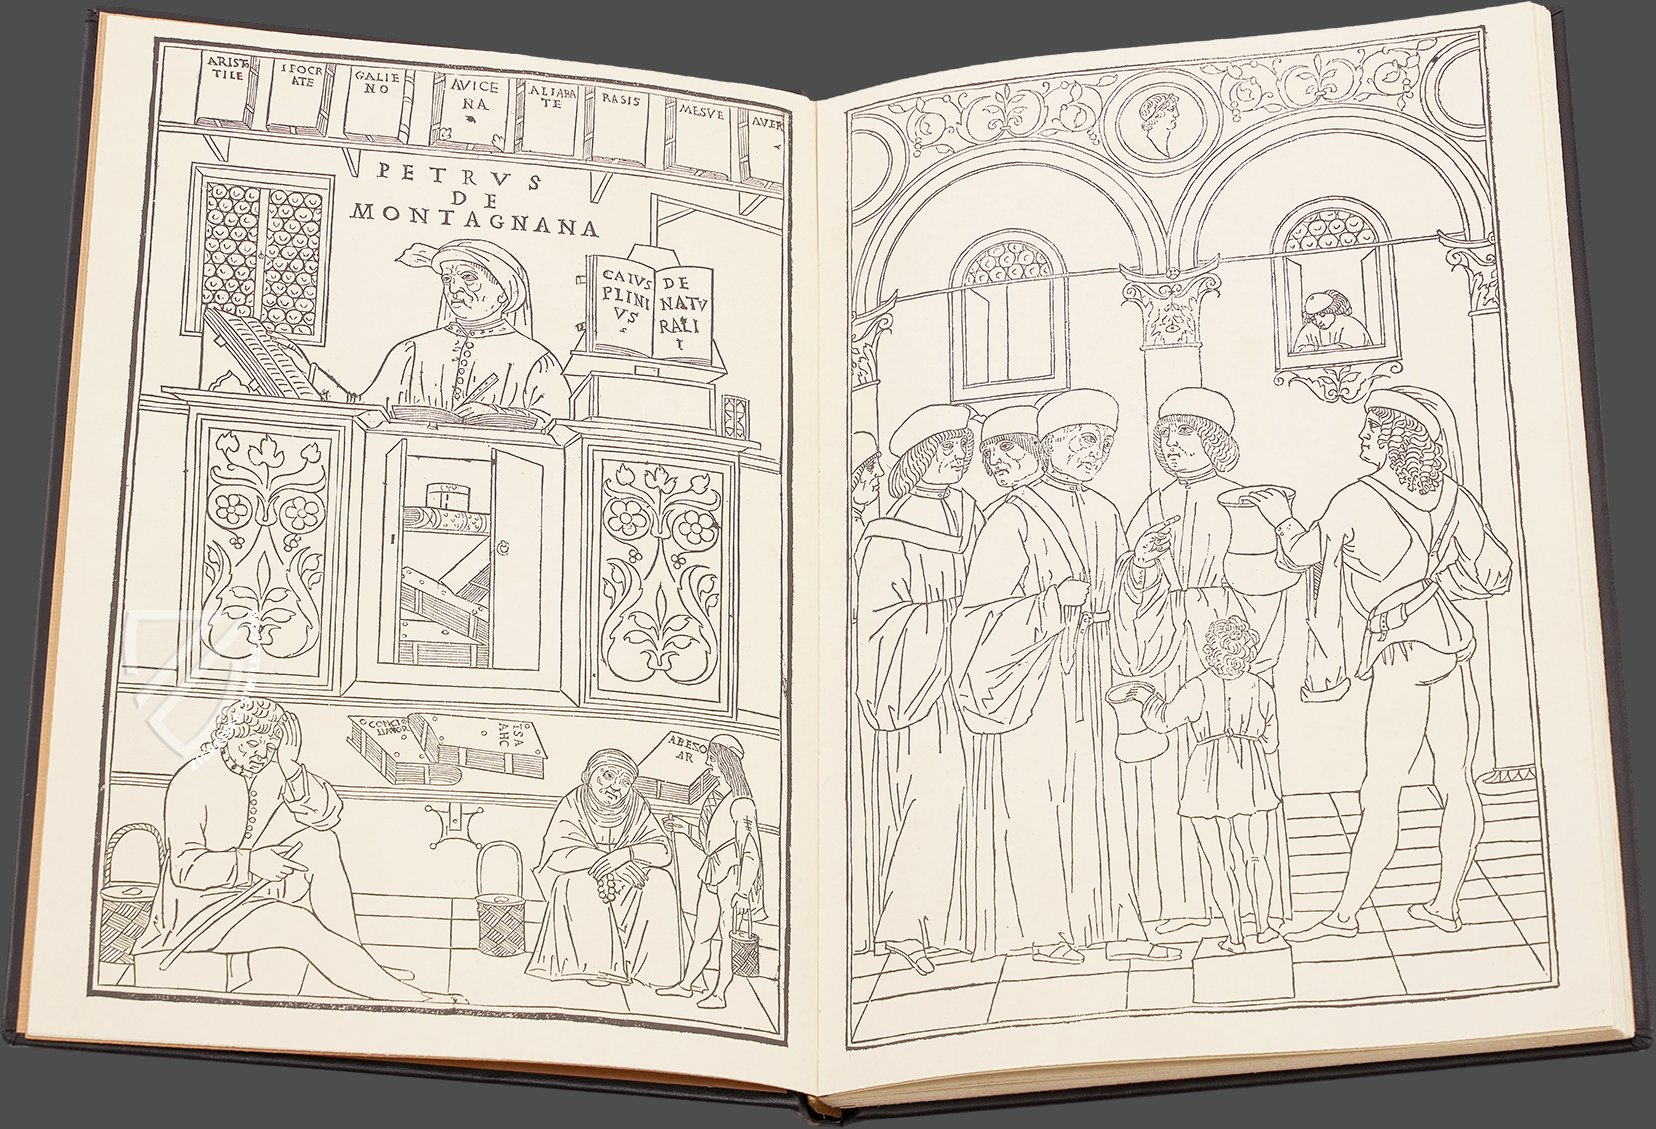 ARISTO
TILE
IPOCR
ATE
GALIE
NO
AVICE
NA
ALIABA
TE
RASIS
MESVE
AVER
PETRVS
DE
MONTAGNANA
CAIVS
PLINI
VS
DE
NATV
RALI
CONCIL
IATOR
ISA
AHC
ABEZO
AR